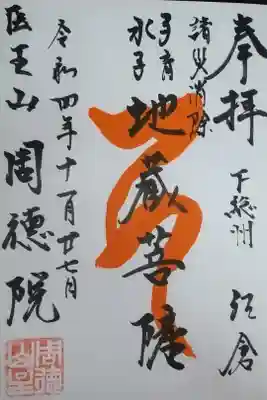 奉拝
下総州 江倉
諸災消除
子育
水子
地蔵菩薩
令和四年十一月廿七月
医王山 周德院